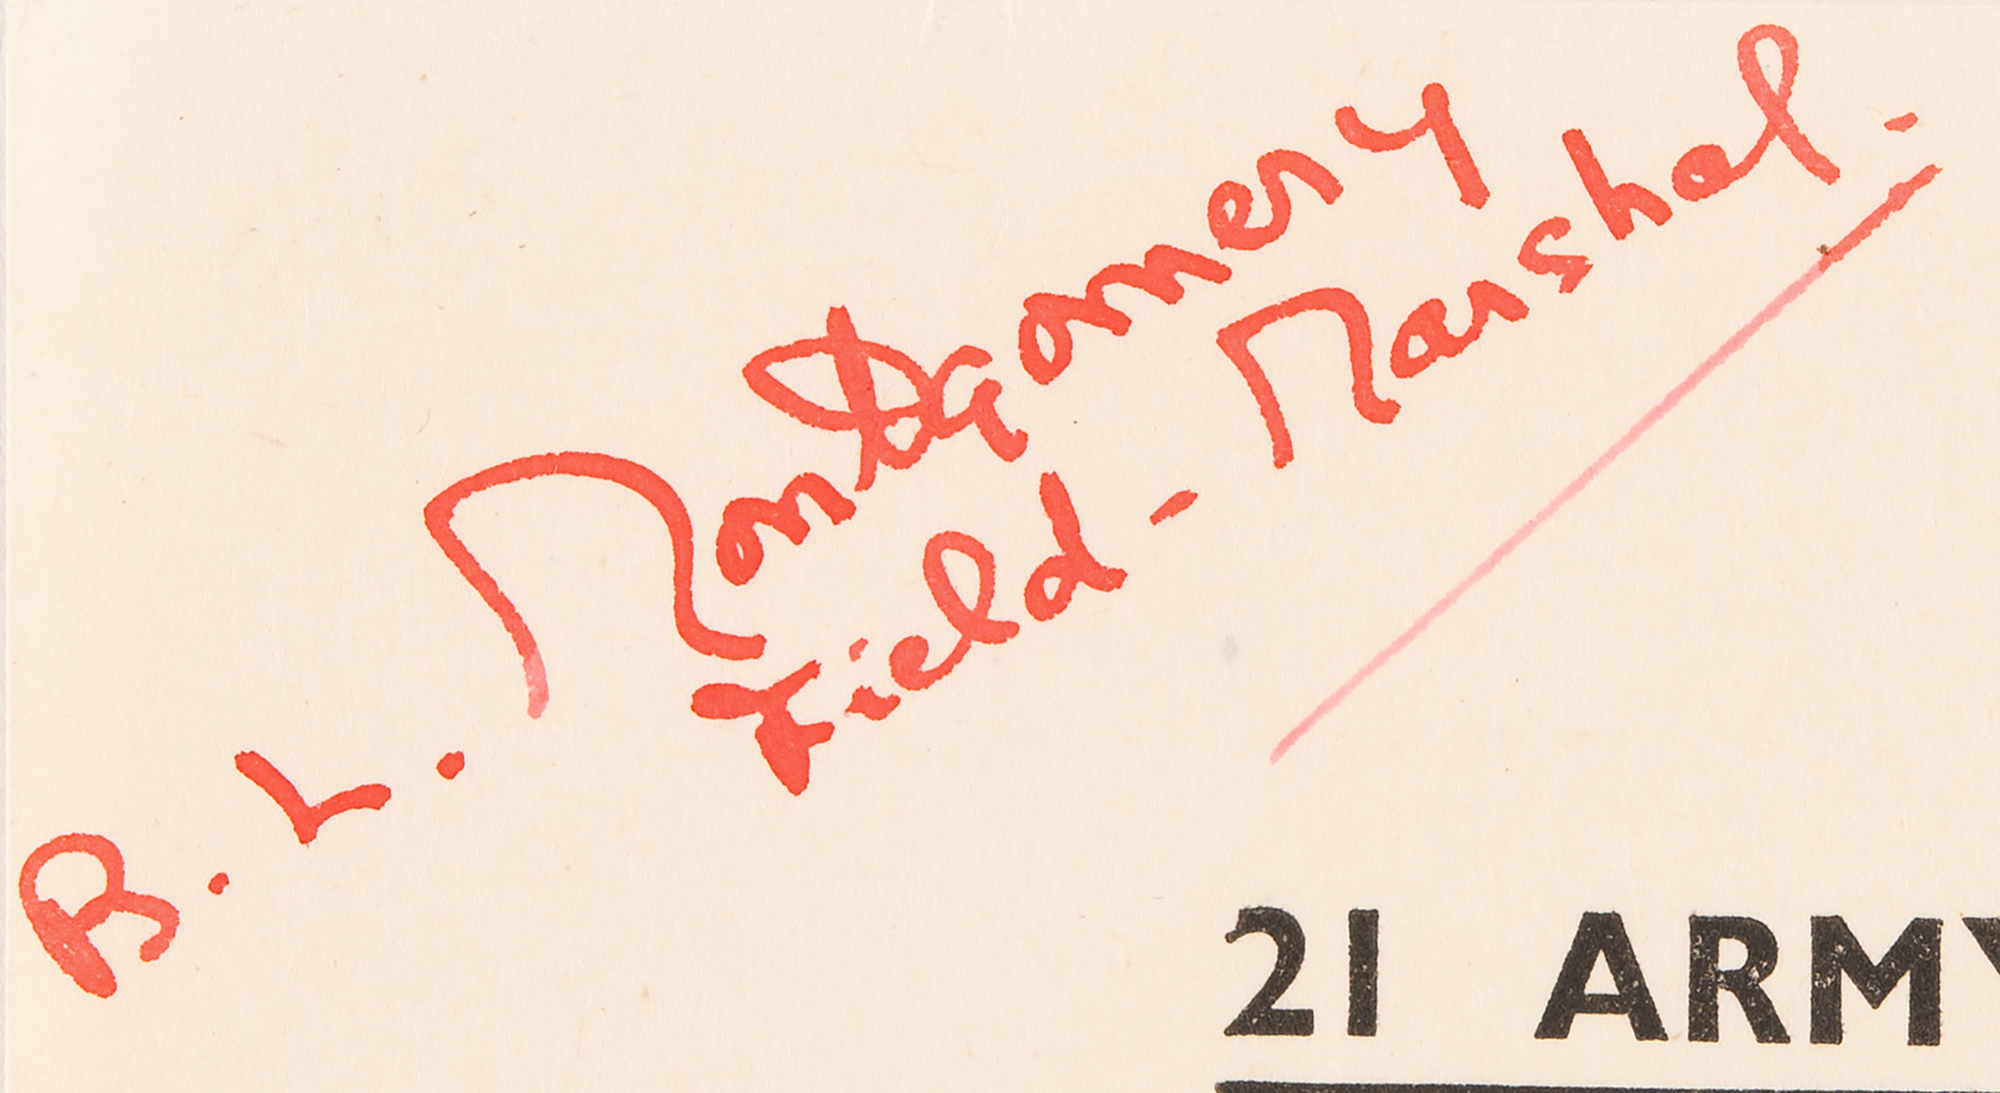 B. L. Montgomery
Field-Marshal.
21 ARMY